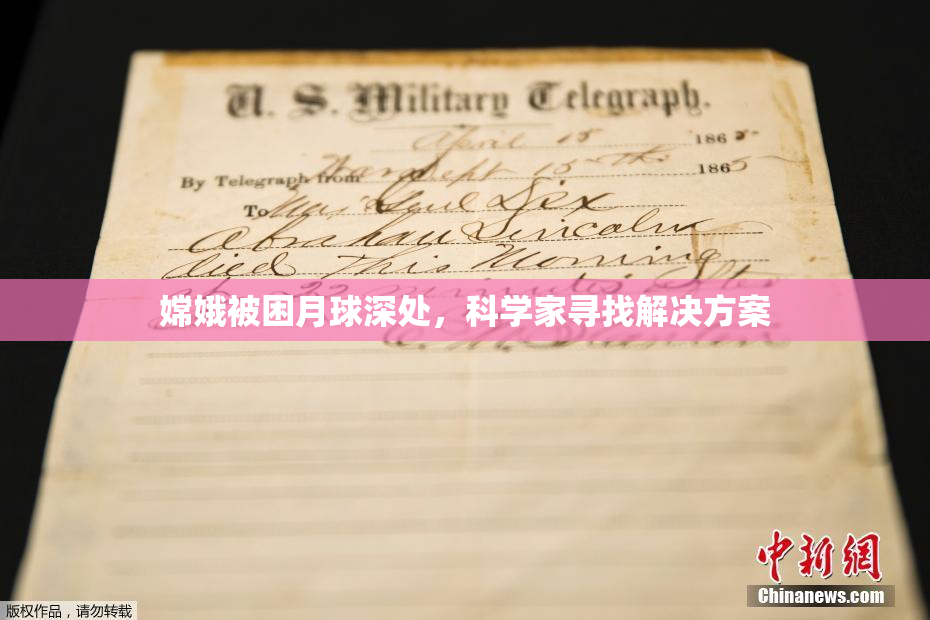 U. S. Military Telegraph.
April 15 1865
By Telegraph from War Dept 15th 1865
To Maj Genl Dix
Abraham Lincoln
died This Morning
22 minutes after
嫦娥被困月球深处，科学家寻找解决方案
中新网
Chinanews.com
版权作品，请勿转载